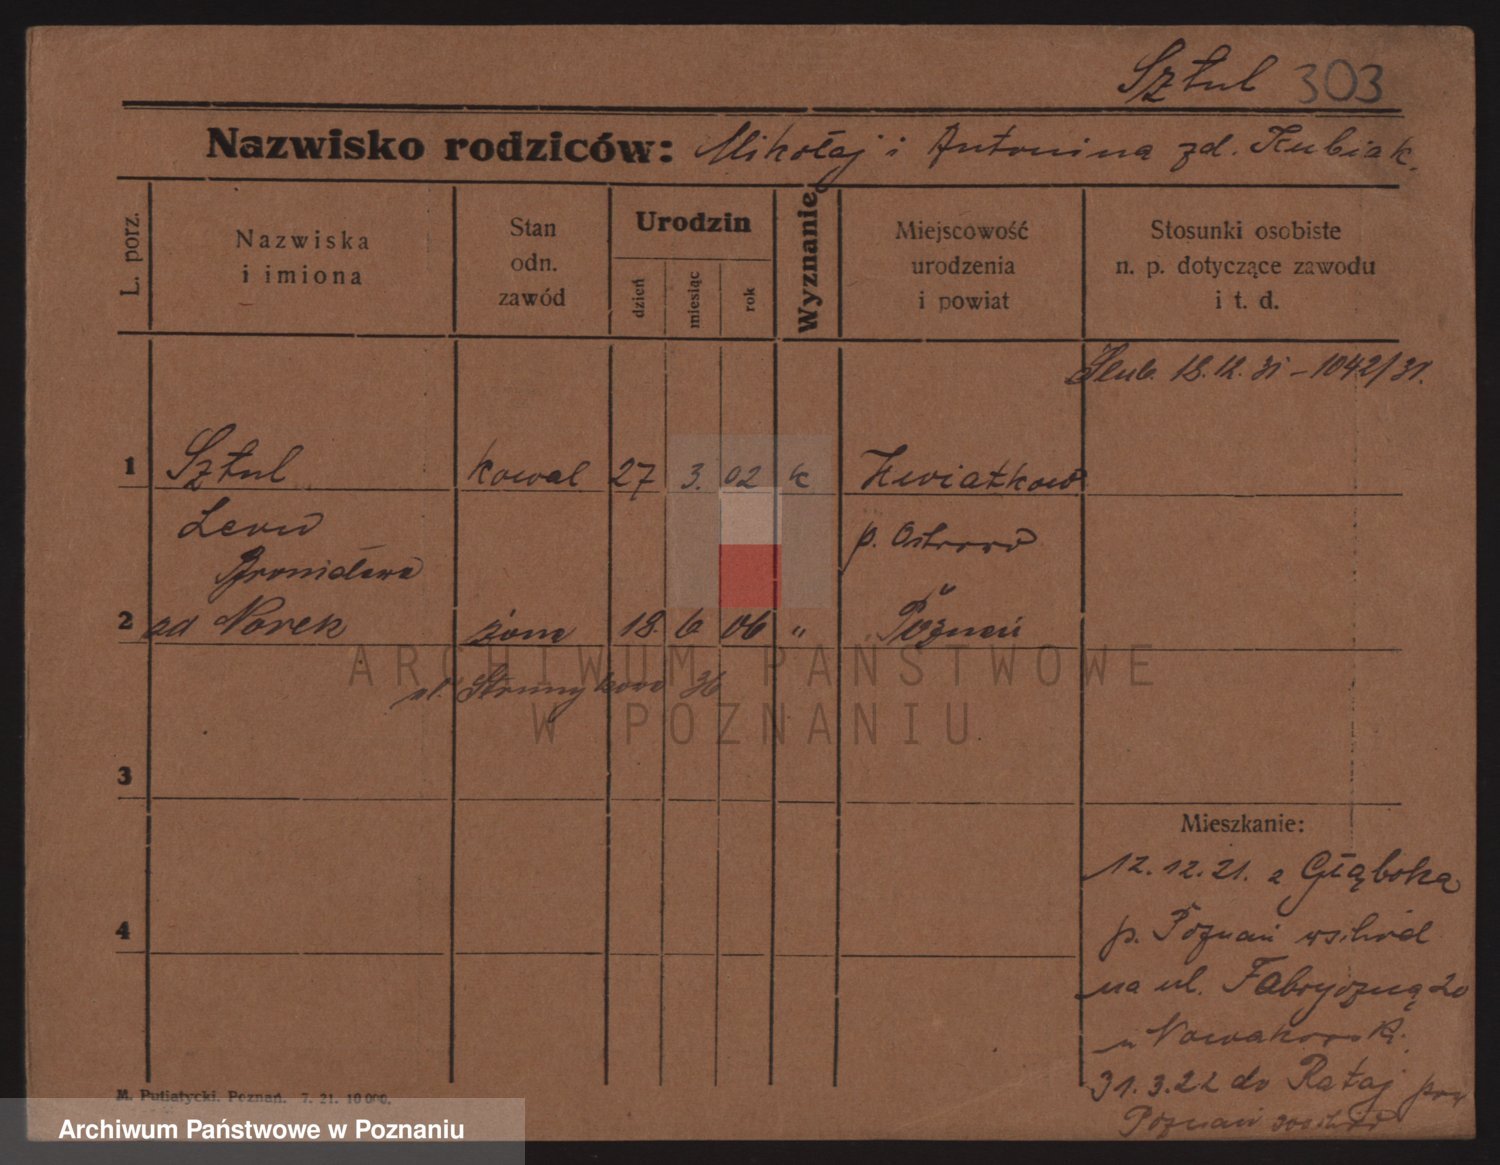 Sztul 303
Nazwisko rodziców: Mikołaj i Antonina zd. Kubiak.
L. porz.
Nazwiska
i imiona
Stan
odn.
zawód
Urodzin
dzień
miesiąc
rok
Wyznanie
Miejscowość
urodzenia
i powiat
Stosunki osobiste
n. p. dotyczące zawodu
i t. d.
18.12.31 – 1042/31.
1 Sztul kowal 27 3. 02 k Kwiatków
Leon p. Ostrów
Bronisława
2 zd Norek żona 18. 6 06 " Poznań
ul. 36
3
Mieszkanie:
12.12.21. z Głęboka
4
p. Poznań wschód
na ul. Fabryczną 20
u Nowakowski.
31.3.22 do Rataj pow
Poznań wschód
M. Putiatycki, Poznań. 7. 21. 10 000.
ARCHIWUM PAŃSTWOWE
W POZNANIU
Archiwum Państwowe w Poznaniu